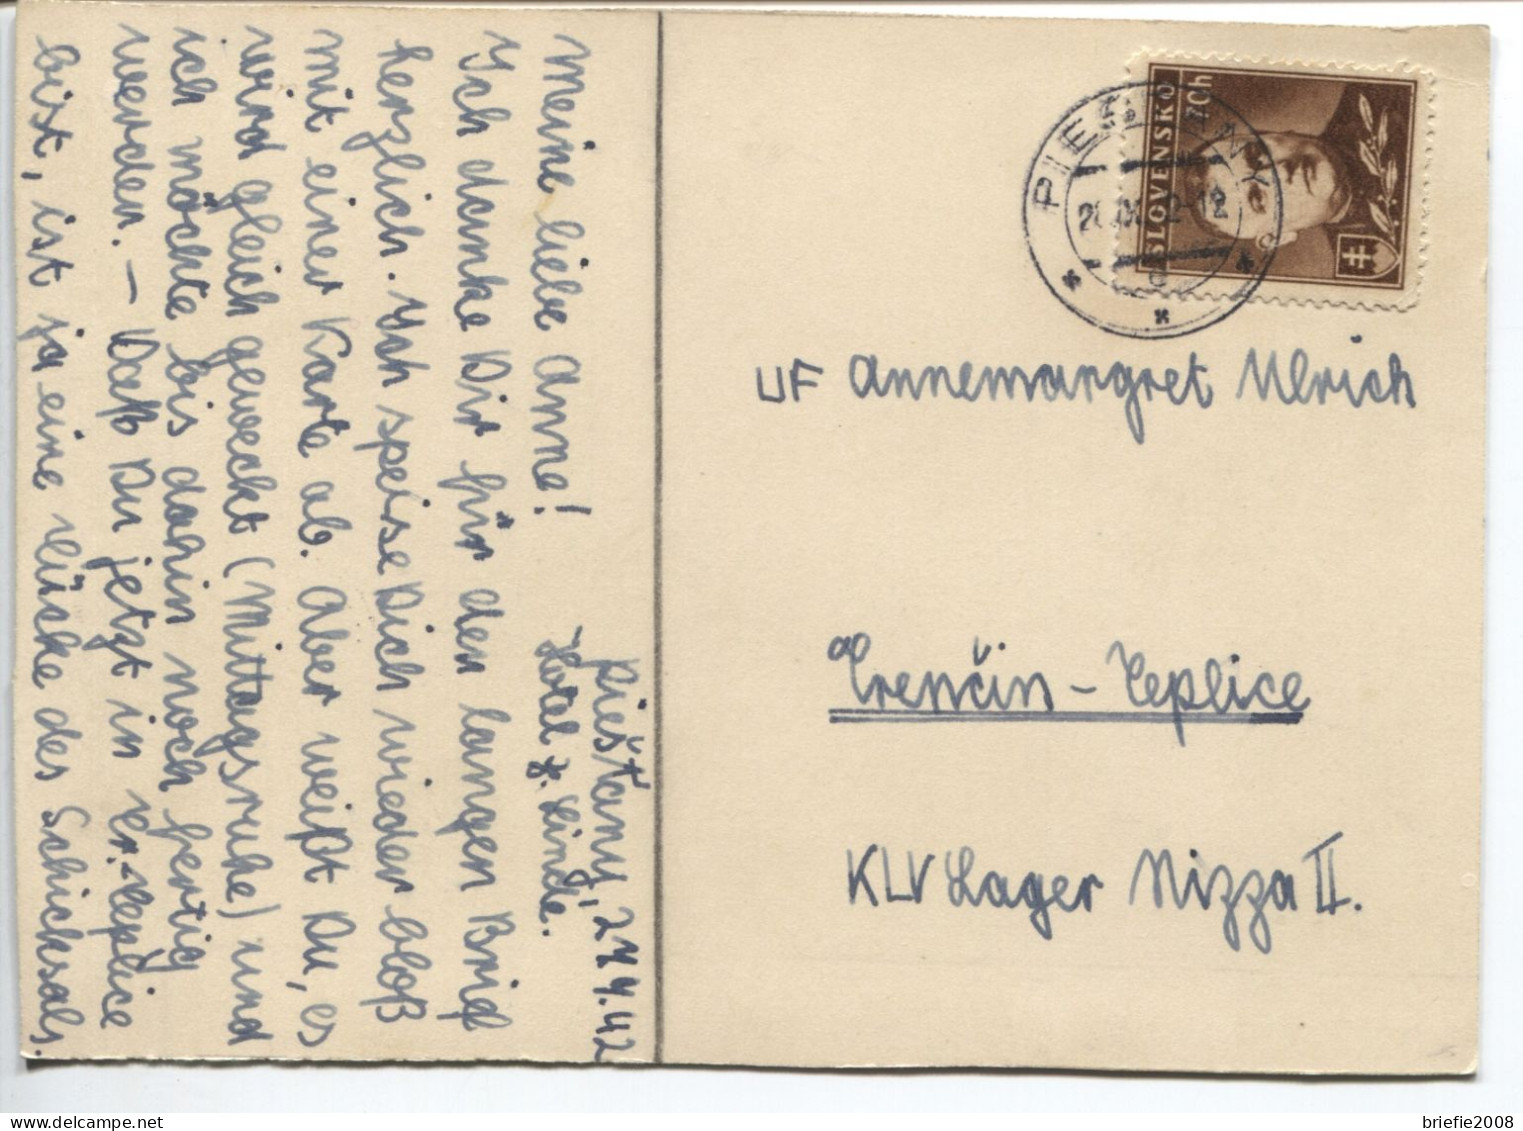 Piešťany, 27.9.42
Hotel z. Linde.
Meine liebe Anne!
Ich danke Dir für den langen Brief
herzlich. Ich speise Dich wieder bloß
mit einer Karte ab. Aber weißt Du, es
wird gleich geweckt (Mittagsruhe) und
ich möchte bis dahin noch fertig
werden. – Daß Du jetzt in Tr.-Teplice
bist, ist ja eine Tücke des Schicksals.
SLOVENSKO
70h
PIEŠŤANY
UF Annemargret Ulrich
Trenčin - Teplice
KLV Lager Nizza II.
briefie2008